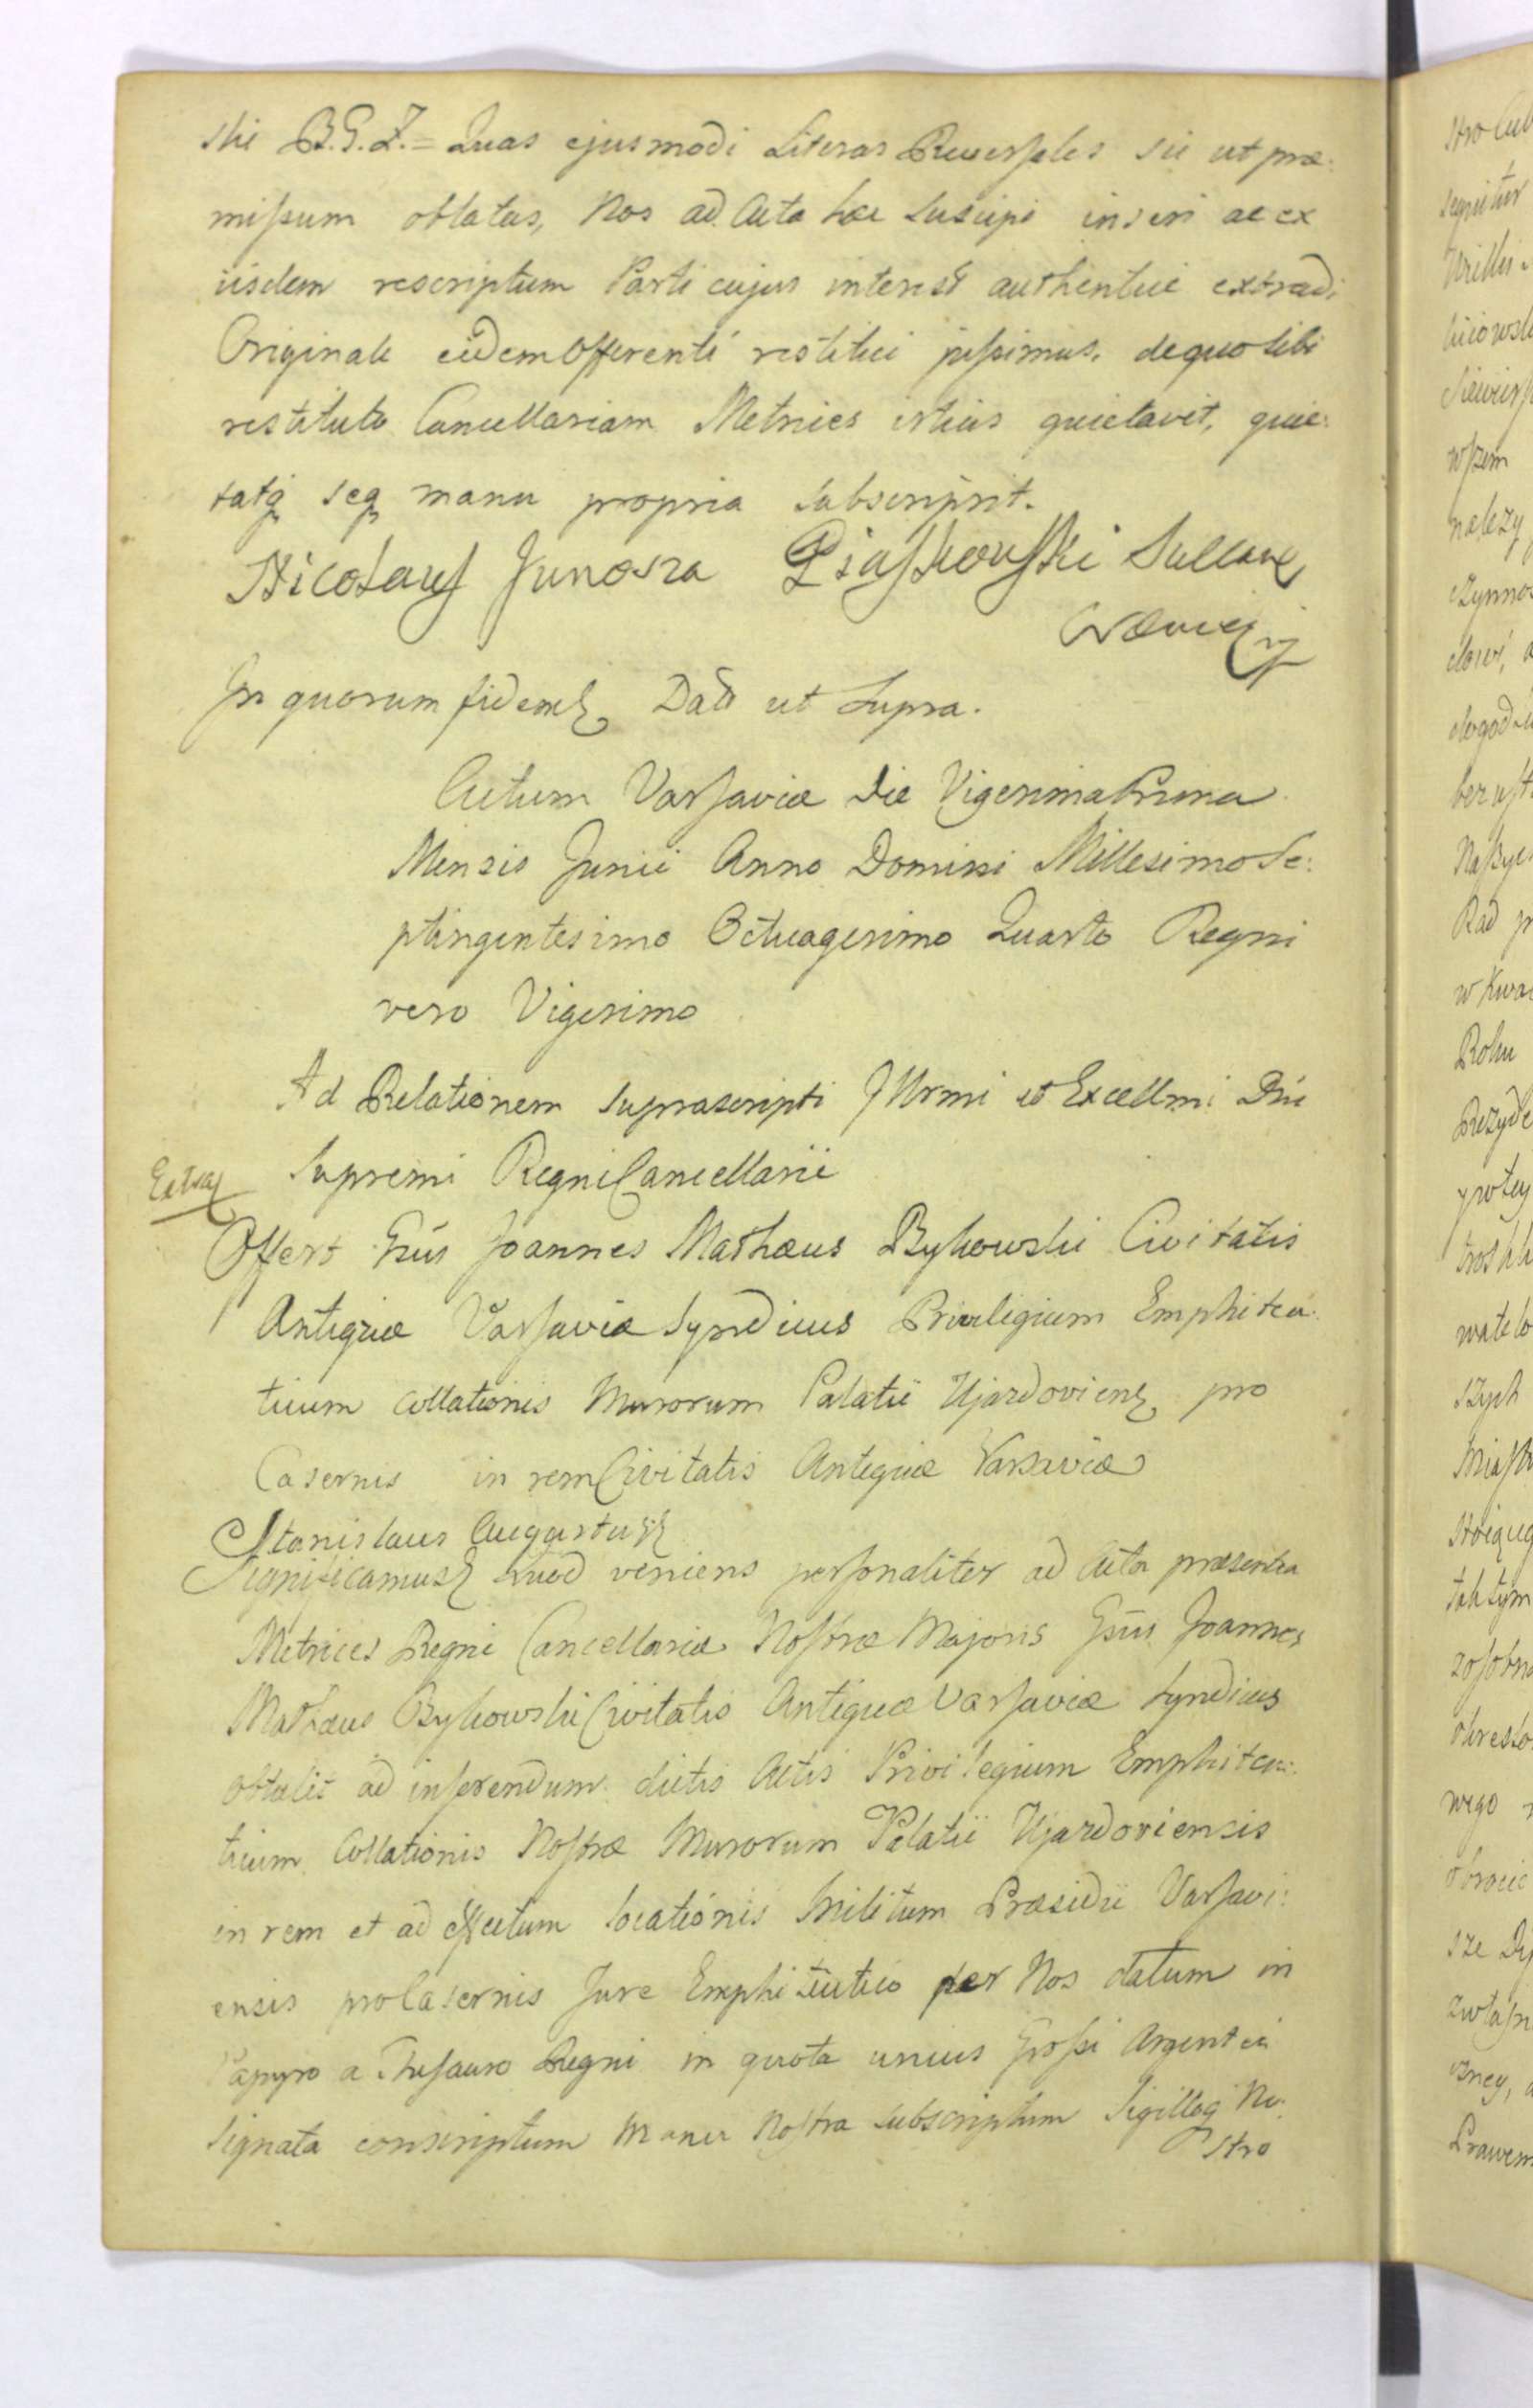 ski B.G.Z. = Quas ejusmodi Literas Reversales sic ut præ:
missum oblatas, Nos ad Acta hæc suscipi inseri ac ex
iisdem rescriptum Parti cujus interest authentice extradi
Originale eidem Offerenti restitui jussimus, de quo sibi
restituto Cancellariam Metrices istius quietavit, quie:
tatq seq manu propria subscripsit.
Nicolaus Junosza Piaskowski Succam
Cræmen
In quorum fidem Dat ut supra.
Actum Varsaviæ die Vigesima Prima
Mensis Junii Anno Domini Millesimo Se:
ptingentesimo Octuagesimo Quarto Regni
vero Vigesimo
Ad Relationem suprascripti Illrmi et Excellmi Dni
Supremi Regni Cancellarii
Extrad
Offert Gsus Joannes Mathæus Bykowski Civitatis
Antiquæ Varsaviæ Syndicus Privilegium Emphiteu:
ticum collationis Murorum Palatii Ujazdoviens pro
Casernis in rem Civitatis Antiquæ Varsaviæ
Stanislaus Augustus
Significamus Quod veniens personaliter ad Acta præsentia
Metrices Regni Cancellariæ Nostræ Majoris Gsus Joannes
Mathæus Bykowski Civitatis Antiquæ Varsaviæ Syndicus
obtulit ad inserendum dictis Actis Privilegium Emphiteu:
ticum Collationis Nostræ Murorum Palatii Ujazdoviensis
in rem et ad effectum locationis Militum Præsidii Varsavi:
ensis pro Casernis Jure Emphiteutico per Nos datum in
Papyro a Thesauro Regni in quota unius Grossi Argentei
signata conscriptum Manu Nostra subscriptum Sigilloq No:
stro